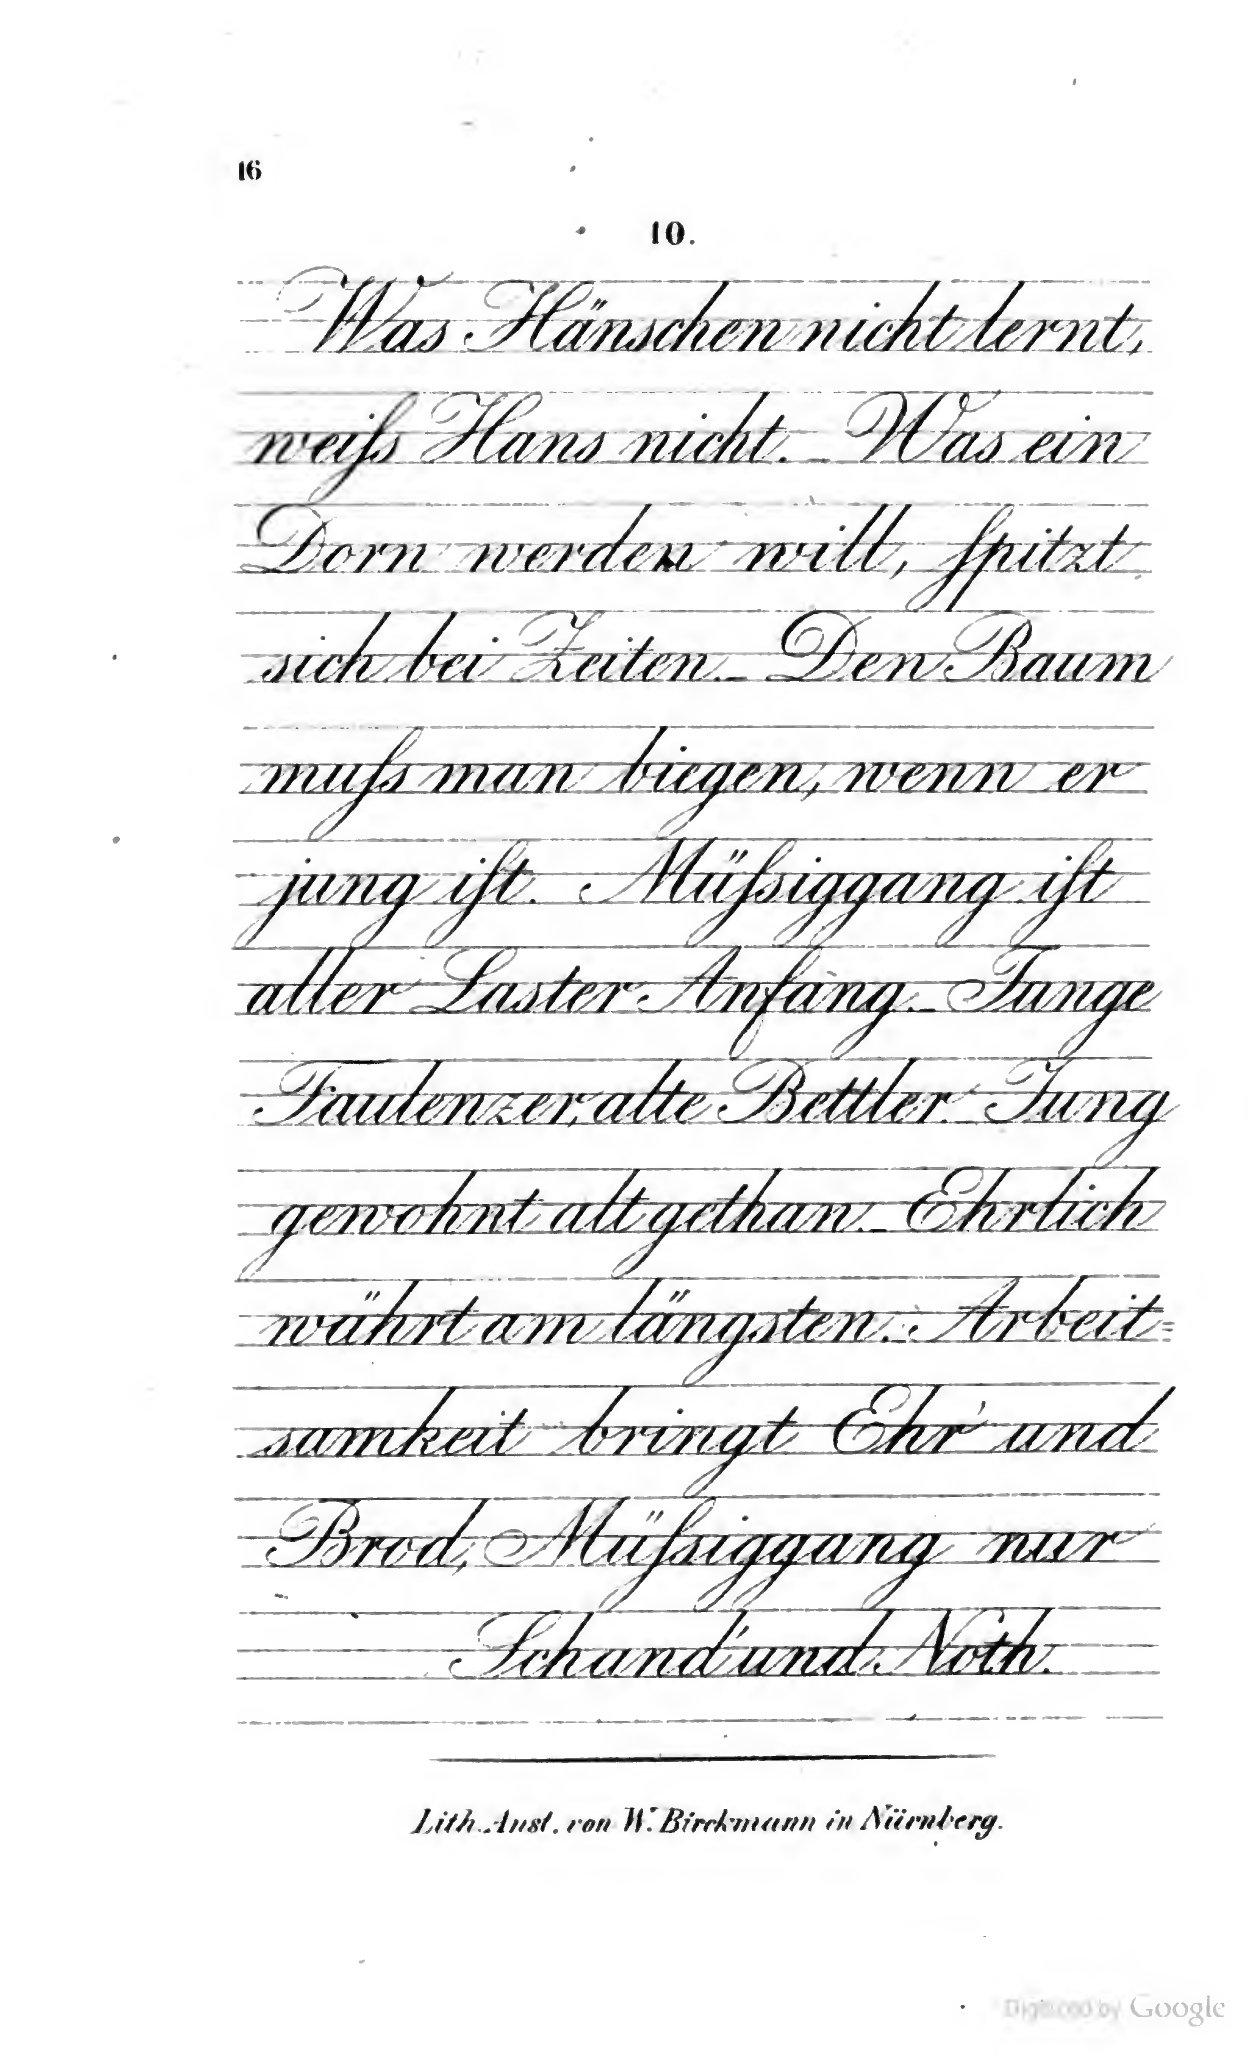 16
10.
Was Hänschen nicht lernt,
weiſs Hans nicht. _ Was ein
Dorn werden will, ſpitzt
sich bei Zeiten. _ Den Baum
muſs man biegen, wenn er
jung iſt. Müſsiggang iſt
aller Laster Anfang. _ Junge
Faulenzer, alte Bettler. _ Jung
gewohnt alt gethan. _ Ehrlich
währt am längsten. _ Arbeit=
samkeit bringt Ehr' und
Brod, Müſsiggang nur
Schand' und Noth.
Lith. Anst. von W. Birckmann in Nürnberg.
Digitized by Google